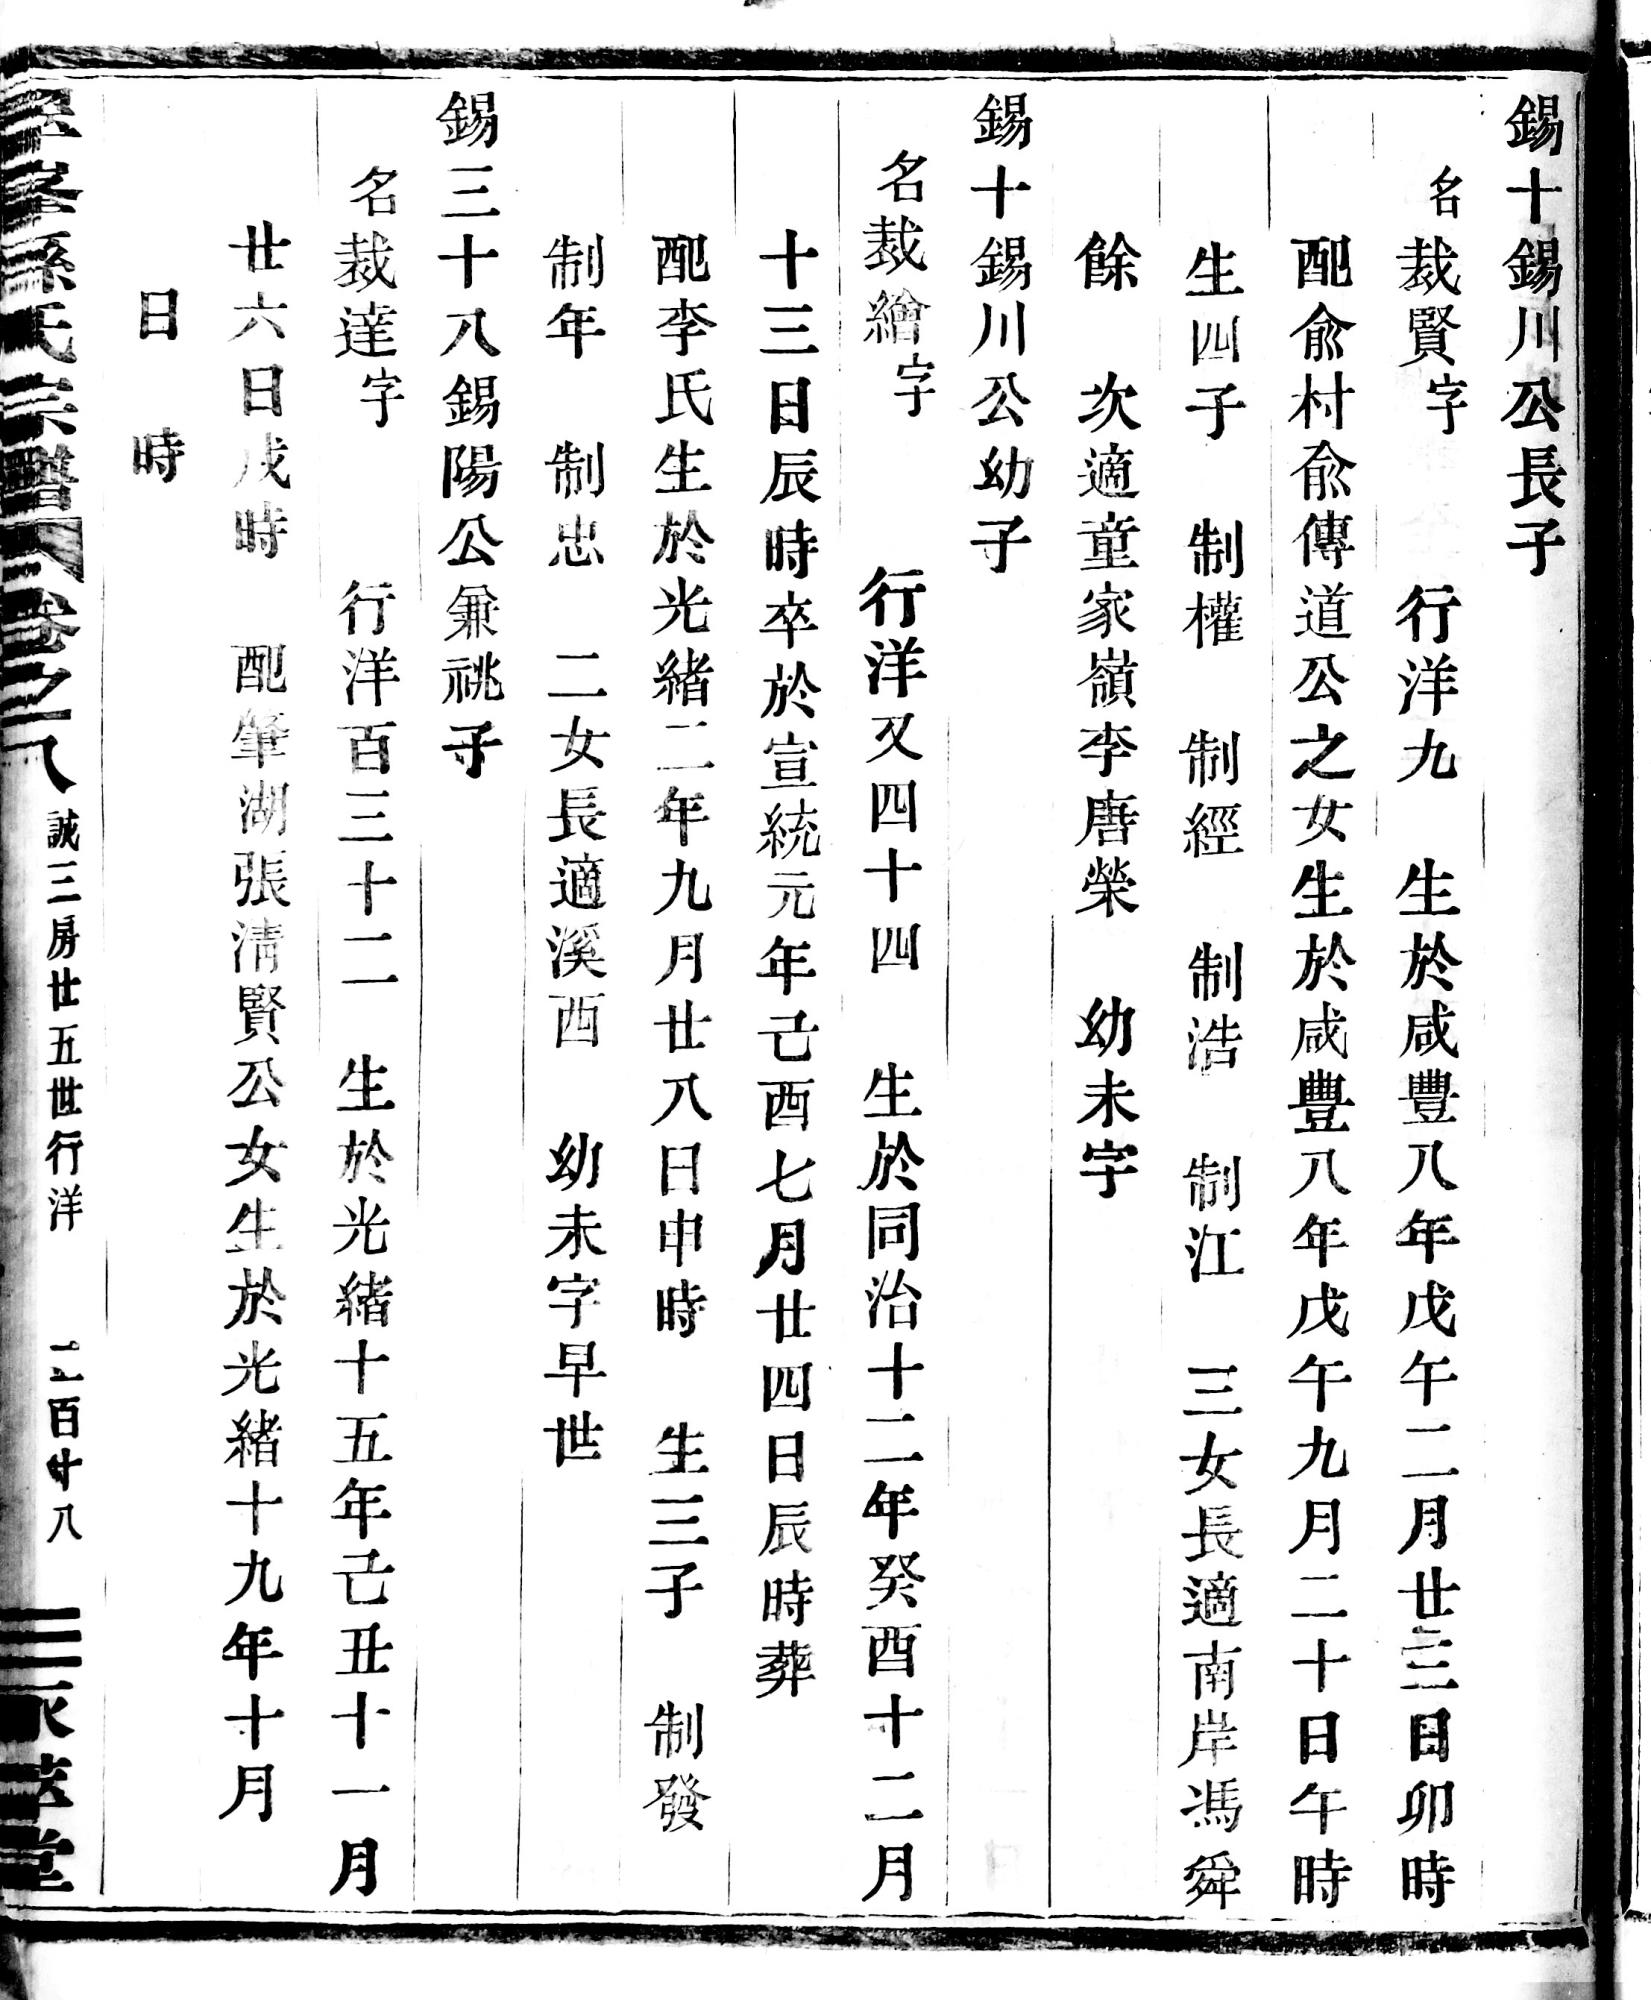 錫十錫川公長子
名裁賢字 行洋九 生於咸豐八年戊午二月廿三日卯時
配俞村俞傳道公之女生於咸豐八年戊午九月二十日午時
生四子 制權 制經 制浩 制江 三女長適南岸馮舜
餘 次適童家嶺李唐榮 幼未字
錫十錫川公幼子
名裁繪字 行洋又四十四 生於同治十二年癸酉十二月
十三日辰時卒於宣統元年己酉七月廿四日辰時葬
配李氏生於光緒二年九月廿八日申時 生三子 制發
制年 制忠 二女長適溪西 幼未字早世
錫三十八錫陽公兼祧子
名裁達字 行洋百三十二 生於光緒十五年己丑十一月
廿六日戌時 配肇湖張淸賢公女生於光緒十九年十月
日 時
孫氏宗譜 卷之八 誠三房廿五世行洋 二百廿八 堂